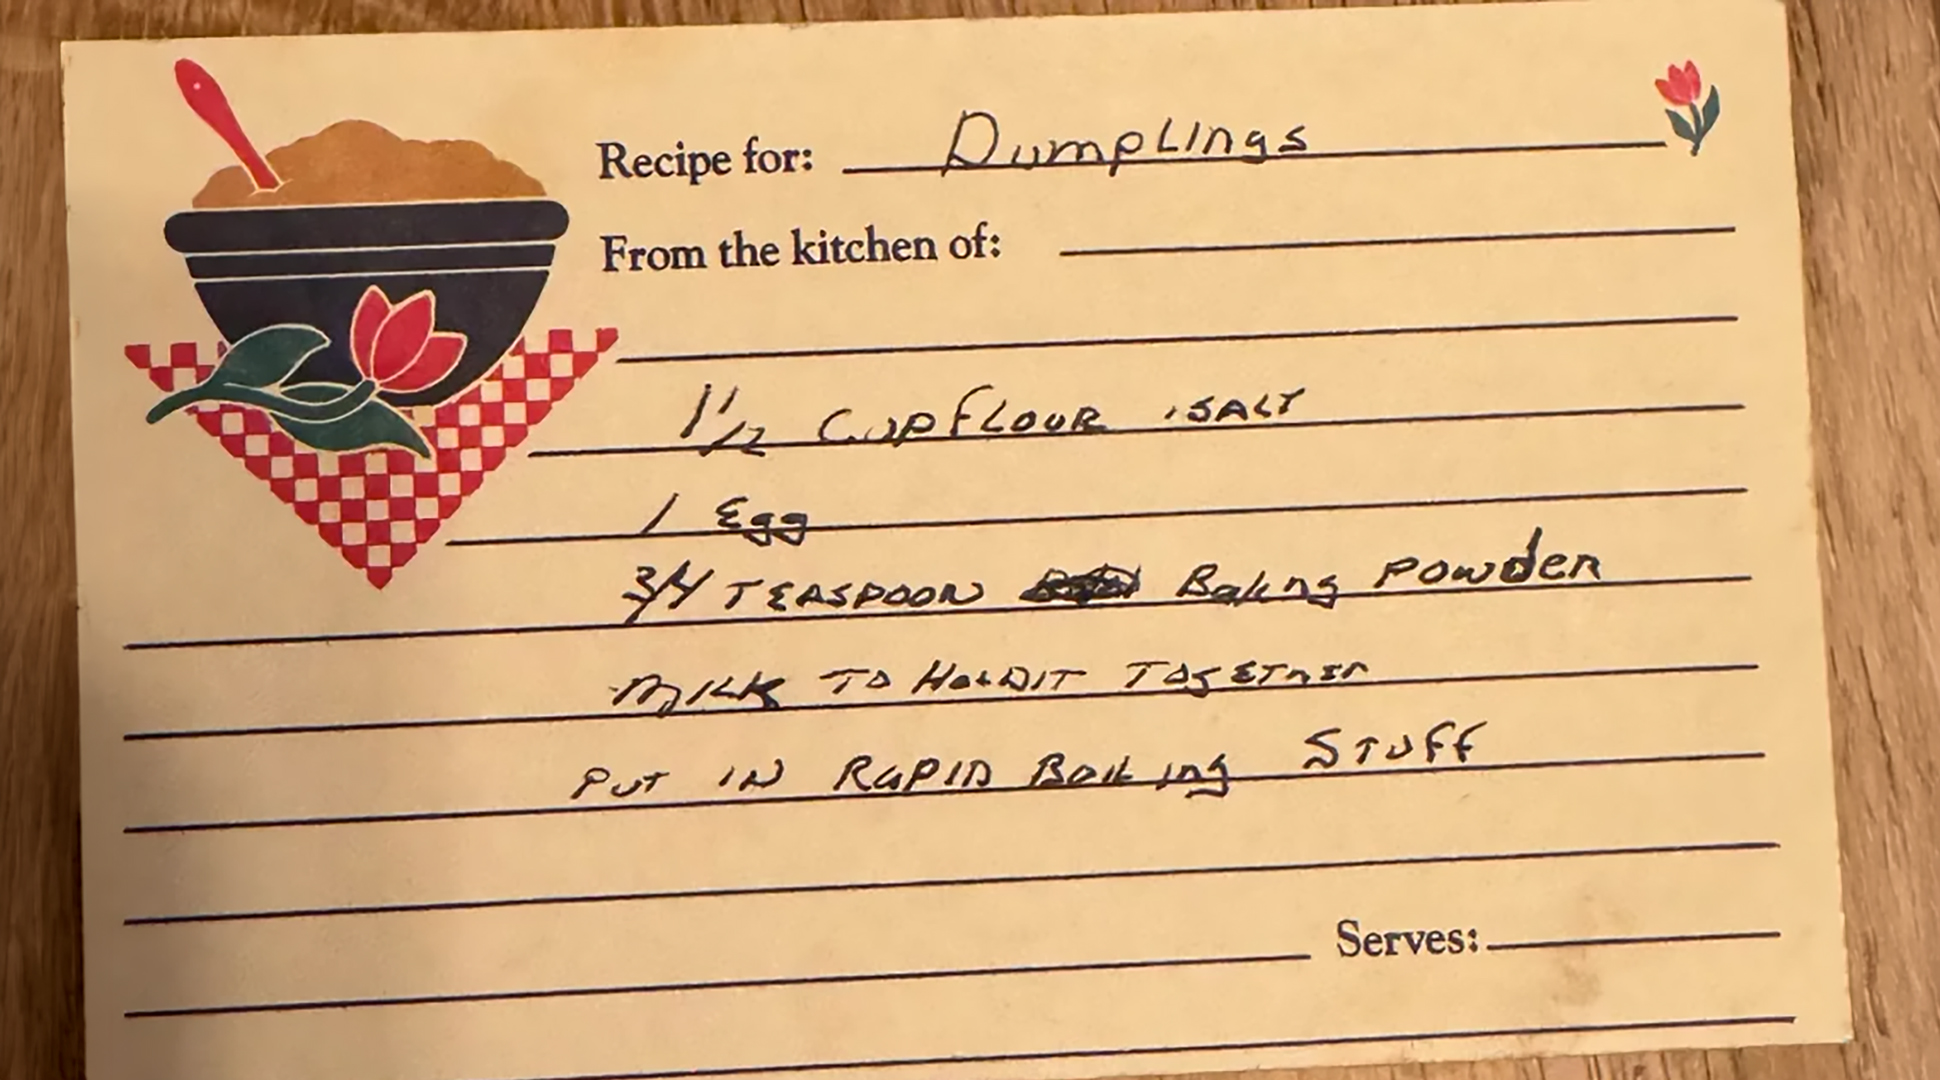 Recipe for: Dumplings
From the kitchen of:
1 1/2 Cup FLOUR , SALT
1 Egg
3/4 TEASPOON Baking Powder
MILK TO HOLD IT TOGETHER
PUT IN RAPID BOILING STUFF
Serves: